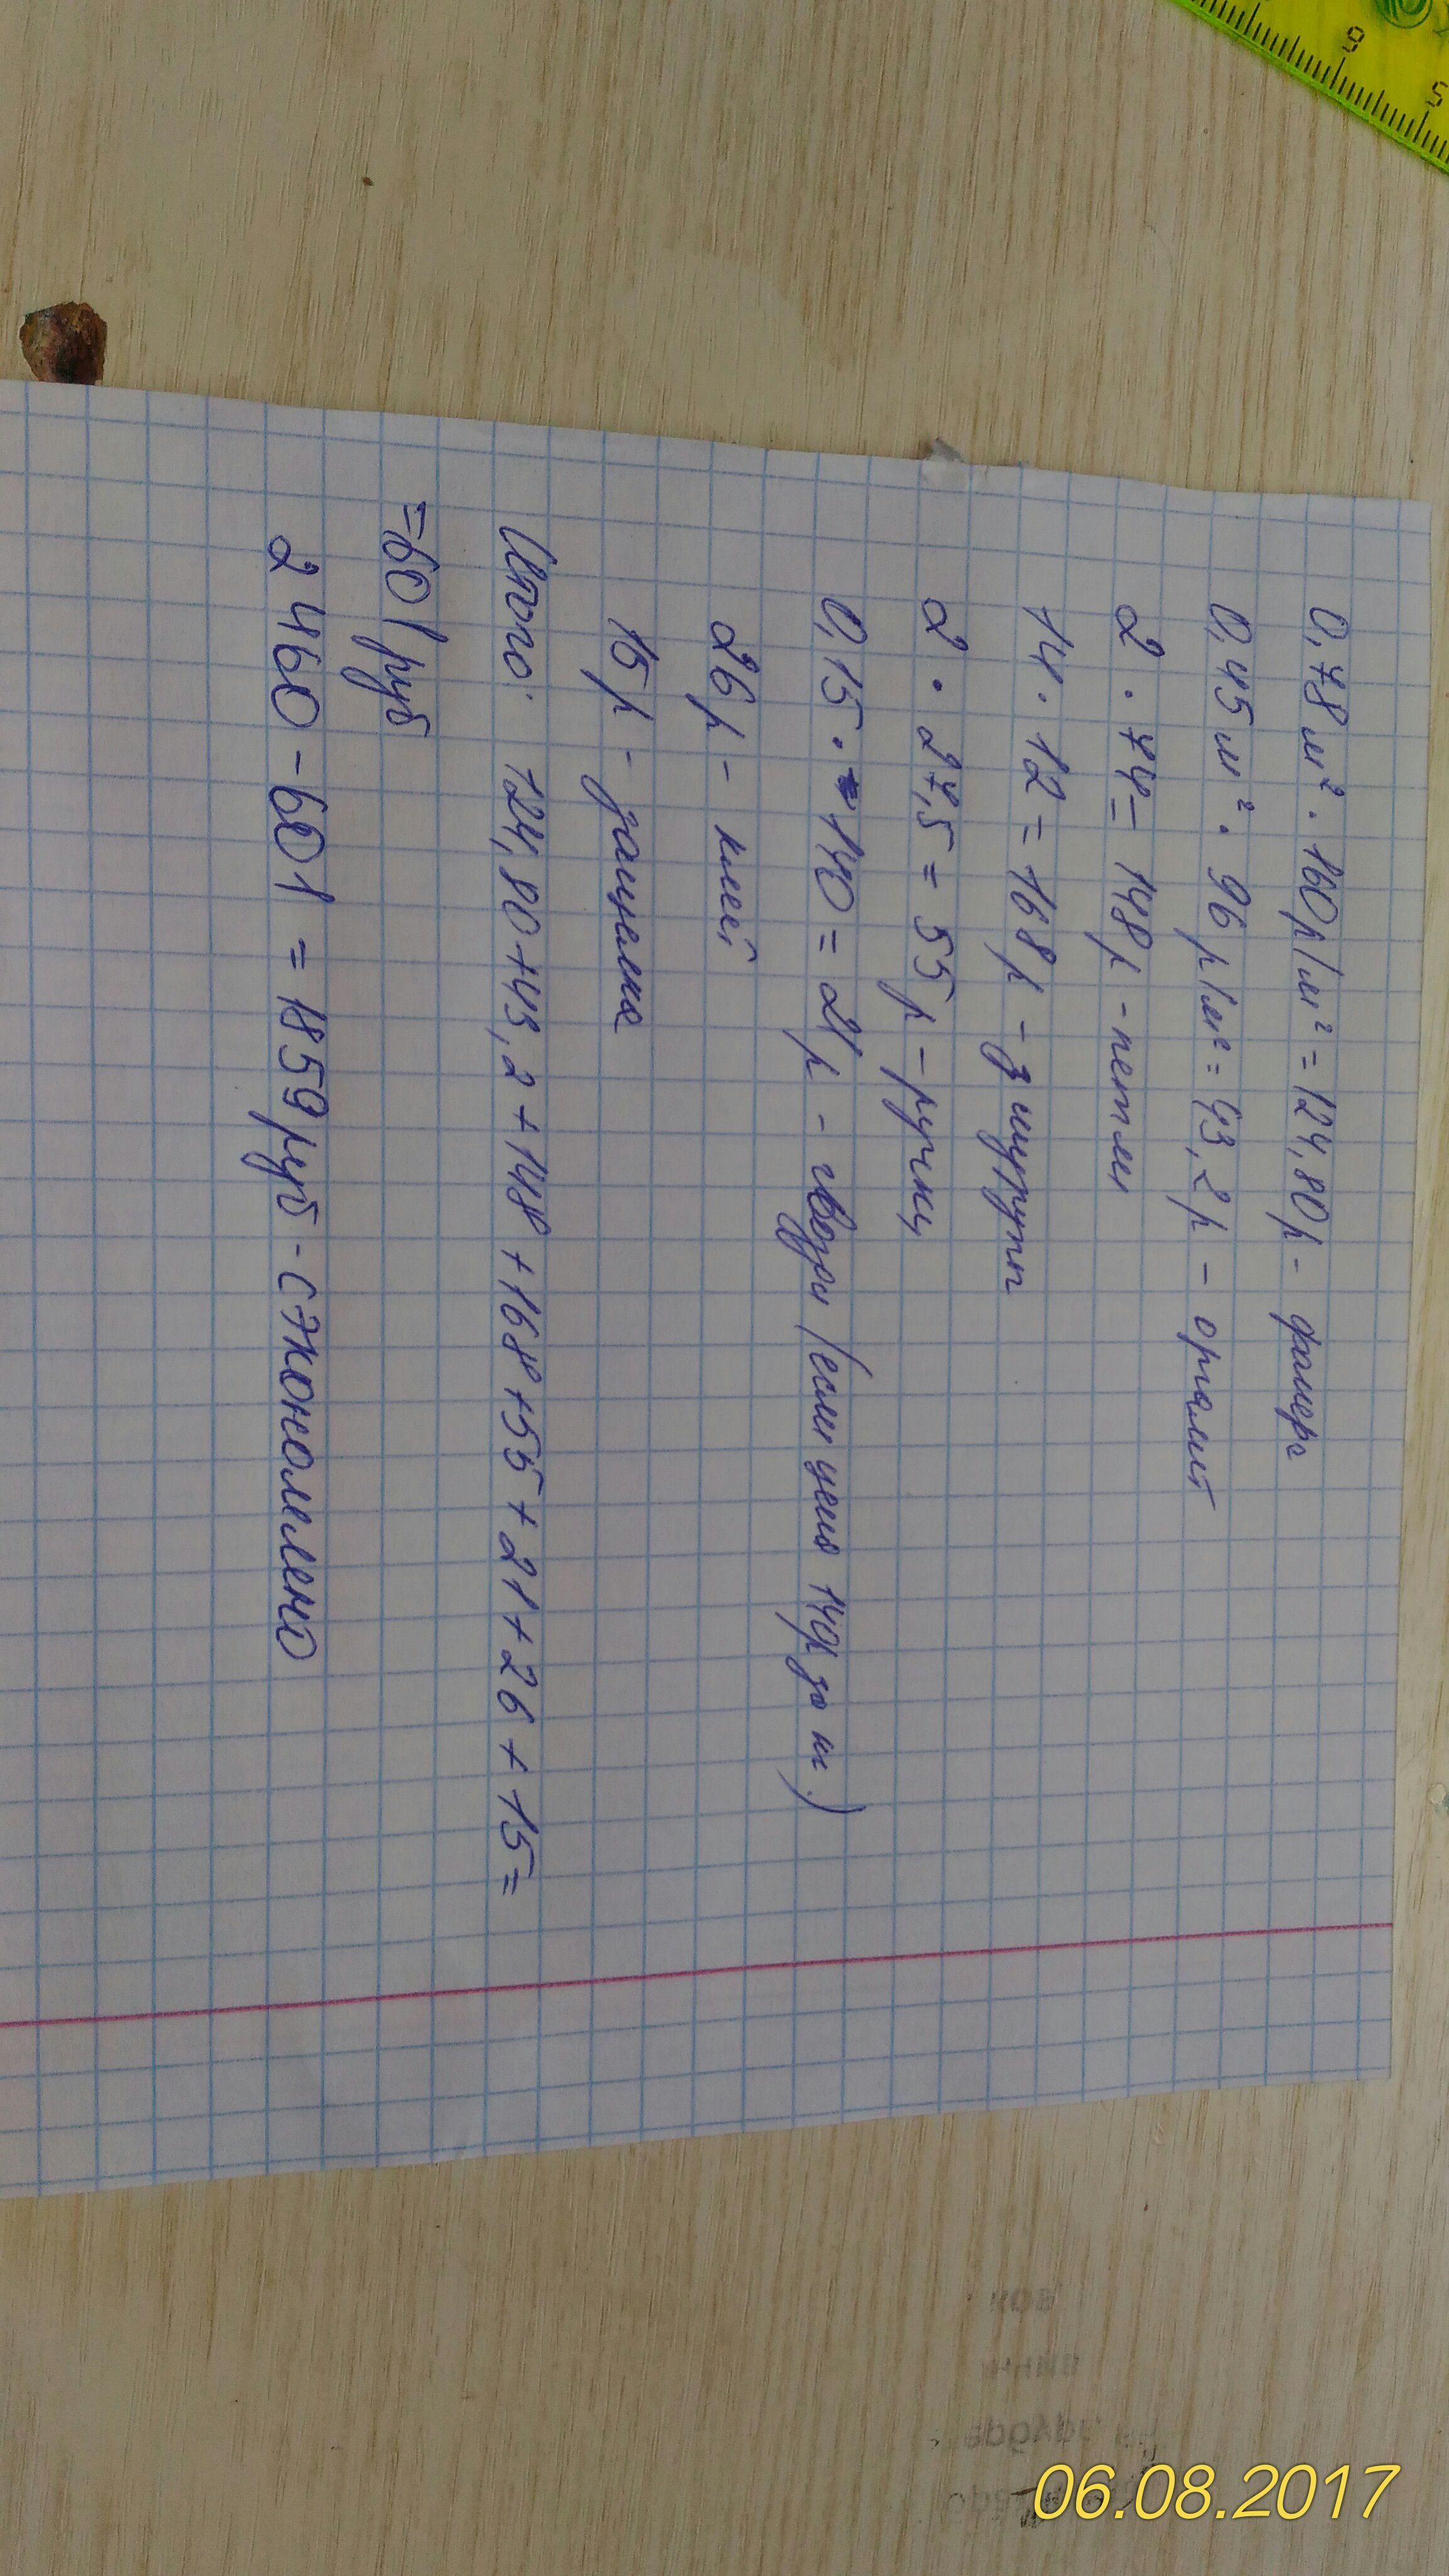 0,78 м² · 160 р/м² = 124,80 р - фанера
0,45 м² · 96 р/м² = 43,2 р - оргалит
2 · 74 = 148 р - петли
14 · 12 = 168 р - шуруп
2 · 27,5 = 55 р - ручки
0,15 · 140 = 21 р - гвозди (если цена 140р за кг)
26 р - клей
15 р - защелка
Итого: 124,80+43,2+148+168+55+21+26+15=
=601 руб
2460-601=1859 руб - сэкономлено
9
5
06.08.2017